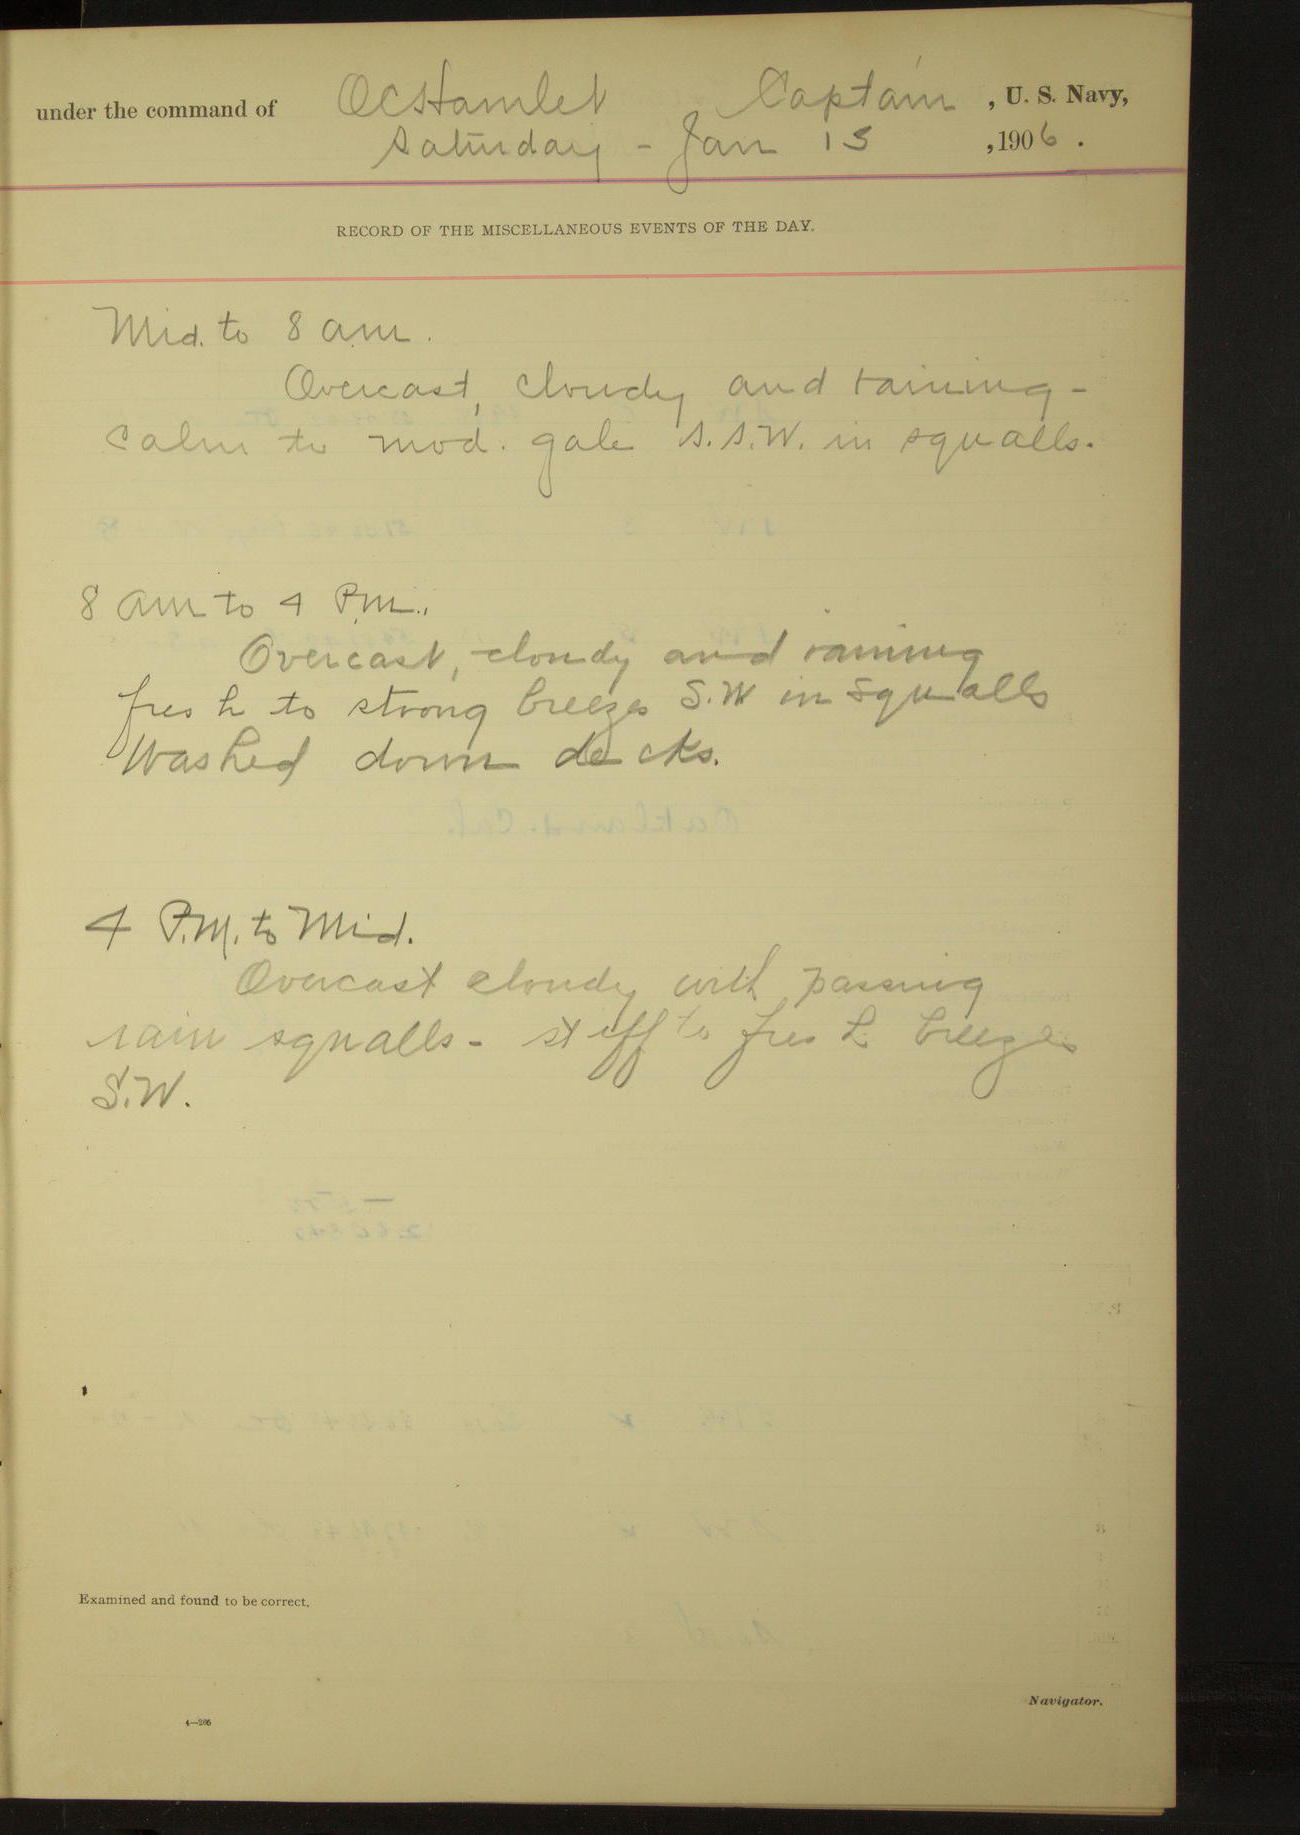 under the command of OCHamlet Captain, U. S. Navy,
Saturday - Jan 13, 1906.
RECORD OF THE MISCELLANEOUS EVENTS OF THE DAY.
Mid. to 8 am.
Overcast, cloudy and raining -
Calm to mod. gale S.S.W. in squalls.
8 am to 4 P.m.
Overcast, cloudy and raining
fresh to strong breezes S.W in squalls
Washed down decks.
4 P.M. to Mid.
Overcast cloudy with passing
rain squalls - stiff to fresh breezes
S.W.
Examined and found to be correct.
Navigator.
4—266